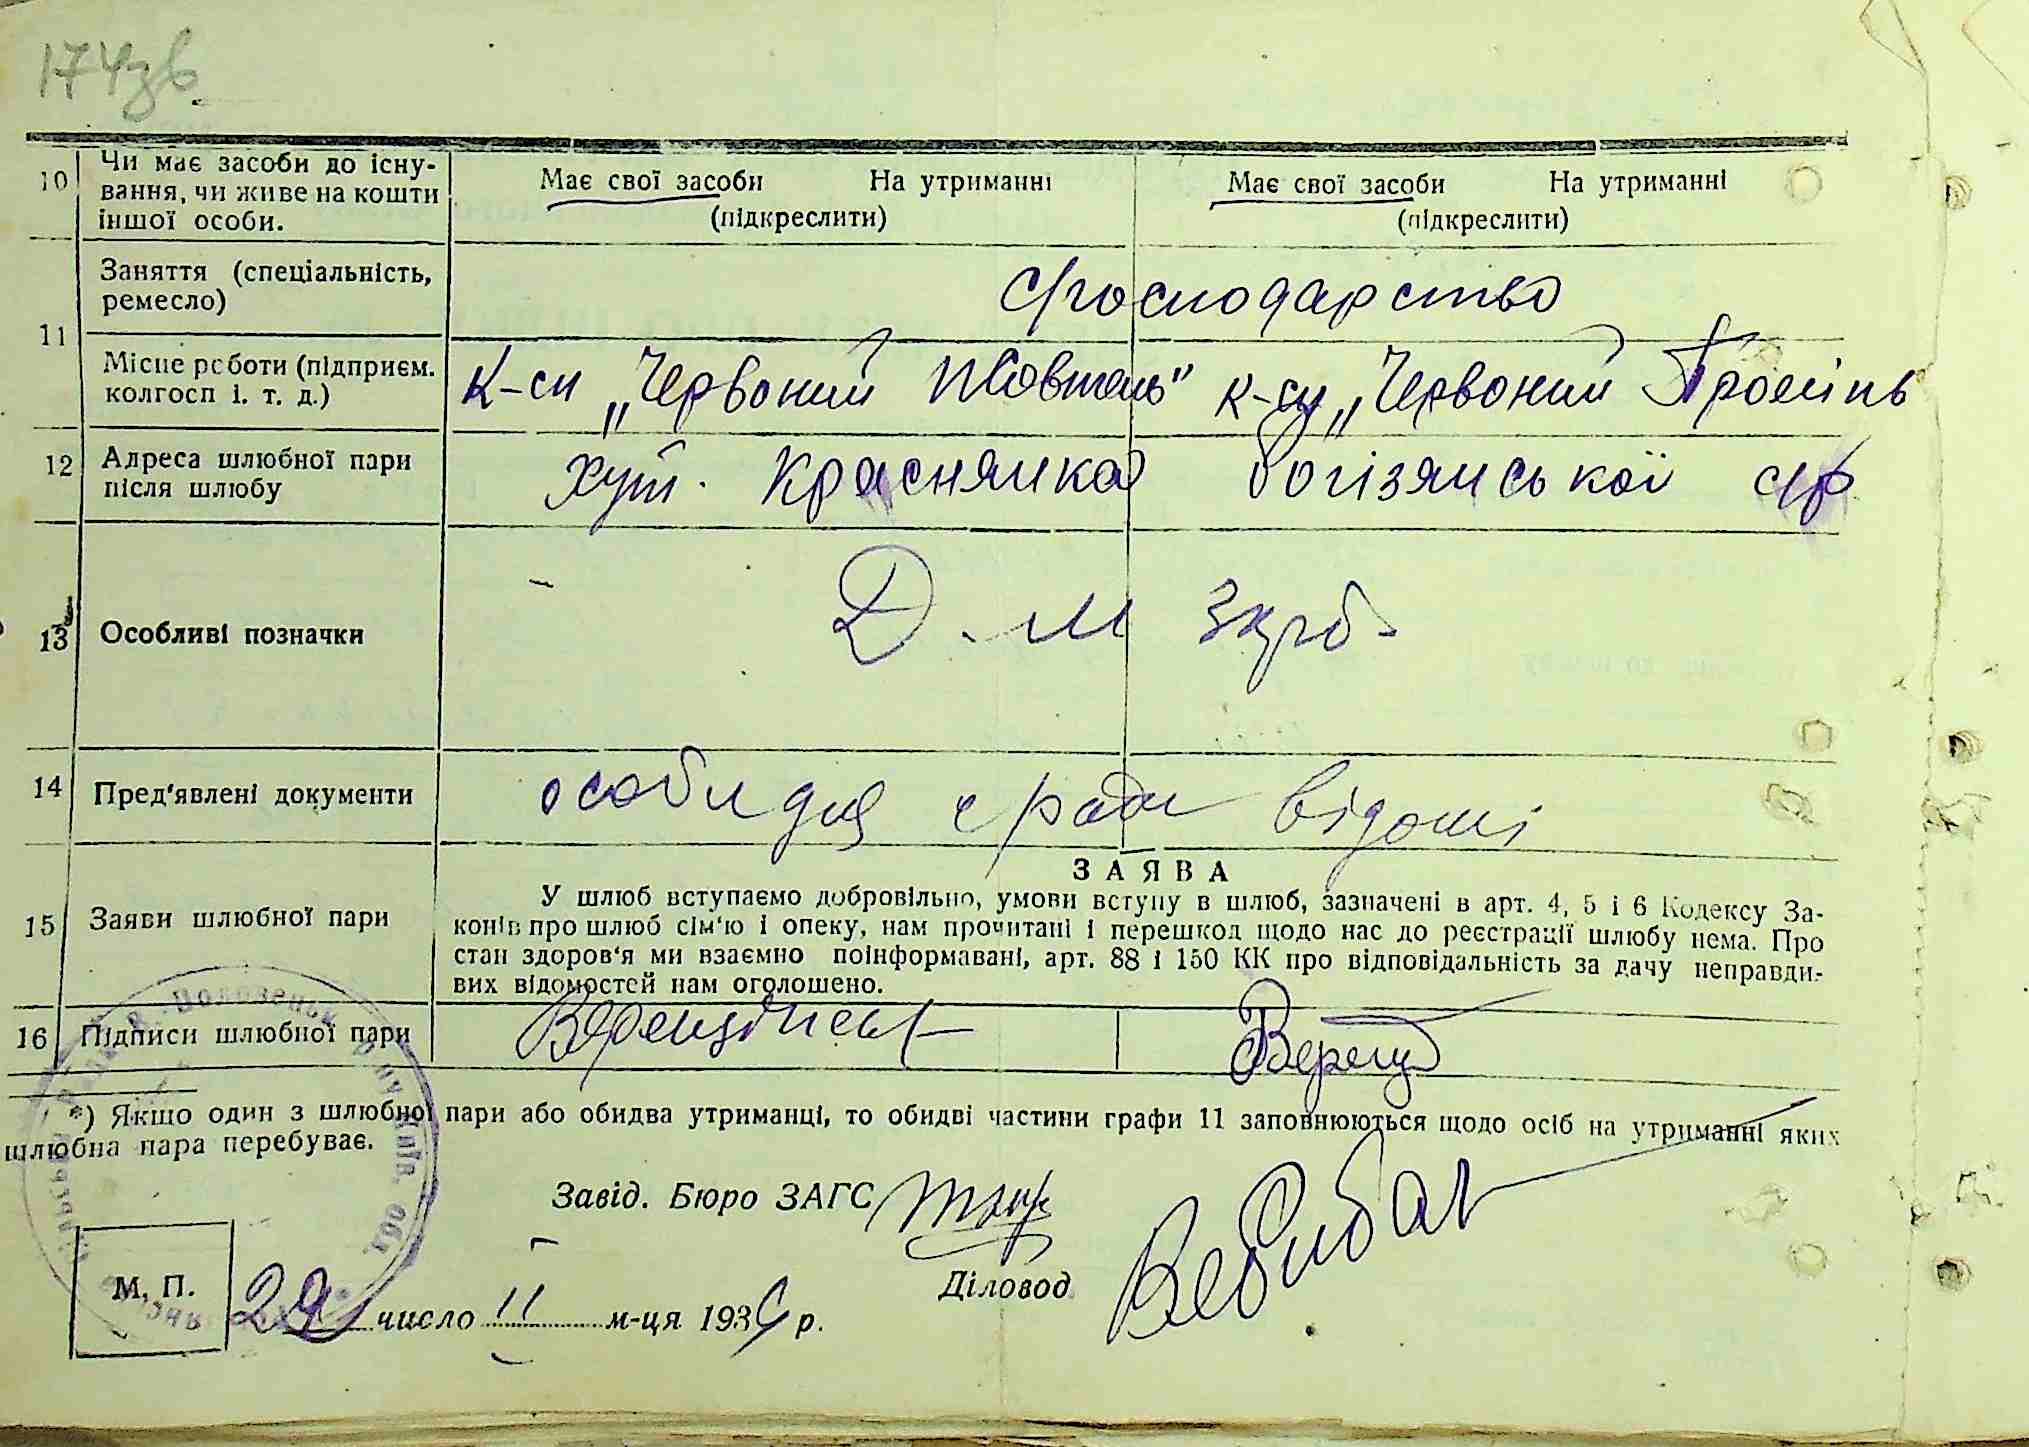 174зв
10 Чи має засоби до існу-
вання, чи живе на кошти
іншої особи.
Має свої засоби На утриманні
(підкреслити)
Має свої засоби На утриманні
(підкреслити)
11 Заняття (спеціальність,
ремесло)
с/господарство
Місце роботи (підприєм.
колгосп і. т. д.)
к-сп „Червоний Жовтень" к-сп „Червоний Промінь
12 Адреса шлюбної пари
після шлюбу
хут. Краснянка Рогізянської с/р
13 Особливі позначки
14 Пред'явлені документи
особи для с/ради відомі
15 Заяви шлюбної пари
ЗАЯВА
У шлюб вступаємо добровільно, умови вступу в шлюб, зазначені в арт. 4, 5 і 6 Кодексу За-
конів про шлюб сім'ю і опеку, нам прочитані і перешкод щодо нас до реєстрації шлюбу нема. Про
стан здоров'я ми взаємно поінформавані, арт. 88 і 150 КК про відповідальність за дачу неправди-
вих відомостей нам оголошено.
16 Підписи шлюбної пари
*) Якщо один з шлюбної пари або обидва утриманці, то обидві частини графи 11 заповнюються щодо осіб на утриманні яких
шлюбна пара перебуває.
Завід. Бюро ЗАГС
Діловод
М. П.
29 число II м-ця 1939 р.